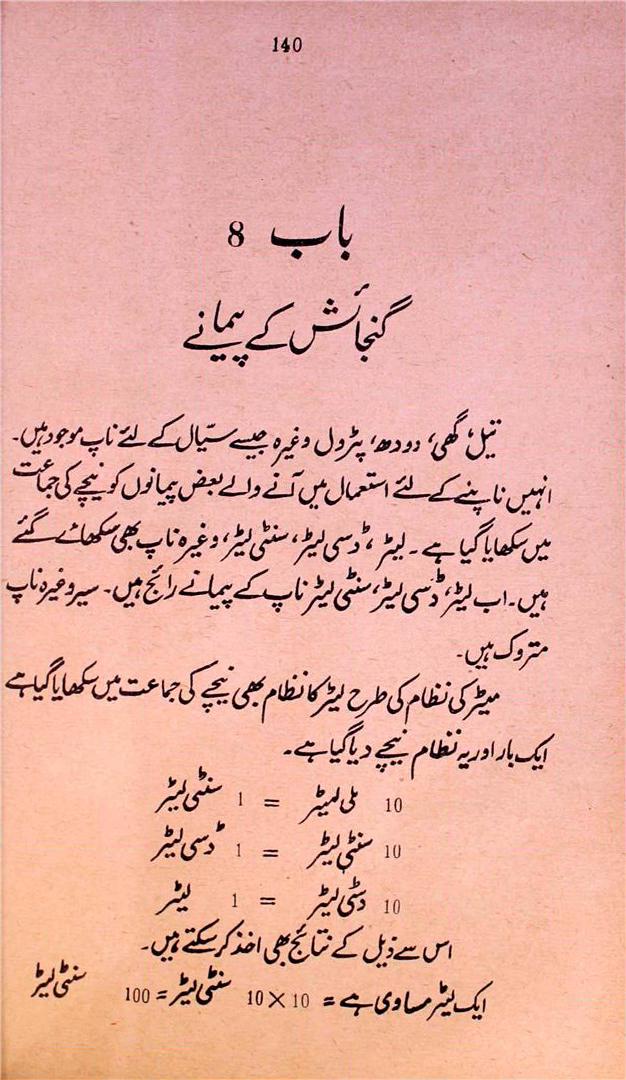 140
باب 8
گنجائش کے پیمانے
تیل، گھی، دودھ، پٹرول وغیرہ جیسے سیّال کے لئے ناپ موجود ہیں۔
انہیں ناپنے کے لئے استعمال میں آنے والے بعض پیمانوں کو نیچے کی جماعت
میں سکھایا گیا ہے۔ لیٹر، ڈسی لیٹر، سنٹی لیٹر، وغیرہ ناپ بھی سکھائے گئے
ہیں۔ اب لیٹر، ڈسی لیٹر، سنٹی لیٹر ناپ کے پیمانے رائج ہیں۔ سیر وغیرہ ناپ
متروک ہیں۔
میٹر کی نظام کی طرح لیٹر کا نظام بھی نیچے کی جماعت میں سکھایا گیا ہے
ایک بار اور یہ نظام نیچے دیا گیا ہے۔
10 ملی لیٹر = 1 سنٹی لیٹر
10 سنٹی لیٹر = 1 ڈسی لیٹر
10 لیٹر = 1 لیٹر
اس سے ذیل کے نتائج بھی اخذ کر سکتے ہیں۔
ایک لیٹر مساوی ہے = 10 × 10 سنٹی لیٹر = 100 سنٹی لیٹر